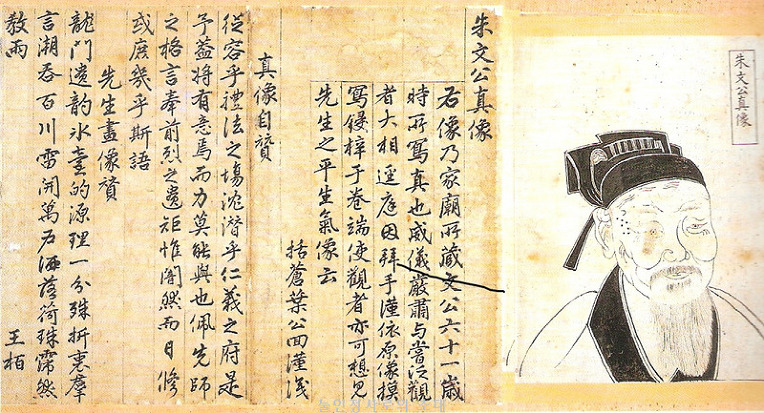 朱文公真像
朱文公真像
右像乃家廟所藏文公六十一歲
時所寫真也威儀嚴肅与嘗泛觀
者大相逕庭因拜手謹依原像摸
寫鋟梓于卷端使觀者亦可想見
先生之平生氣像云
括蒼葉公回謹識
真像自贊
從容乎禮法之場沈潛乎仁義之府是
予蓋將有意焉而力莫能與也佩先師
之格言奉前烈之遺矩惟闇然而日修
或庶幾乎斯語
先生畫像贊
龍門遺韵氷壺的源理一分殊折衷羣
言潮吞百川雷開萬戶洒落荷珠霈然
教雨 王柏